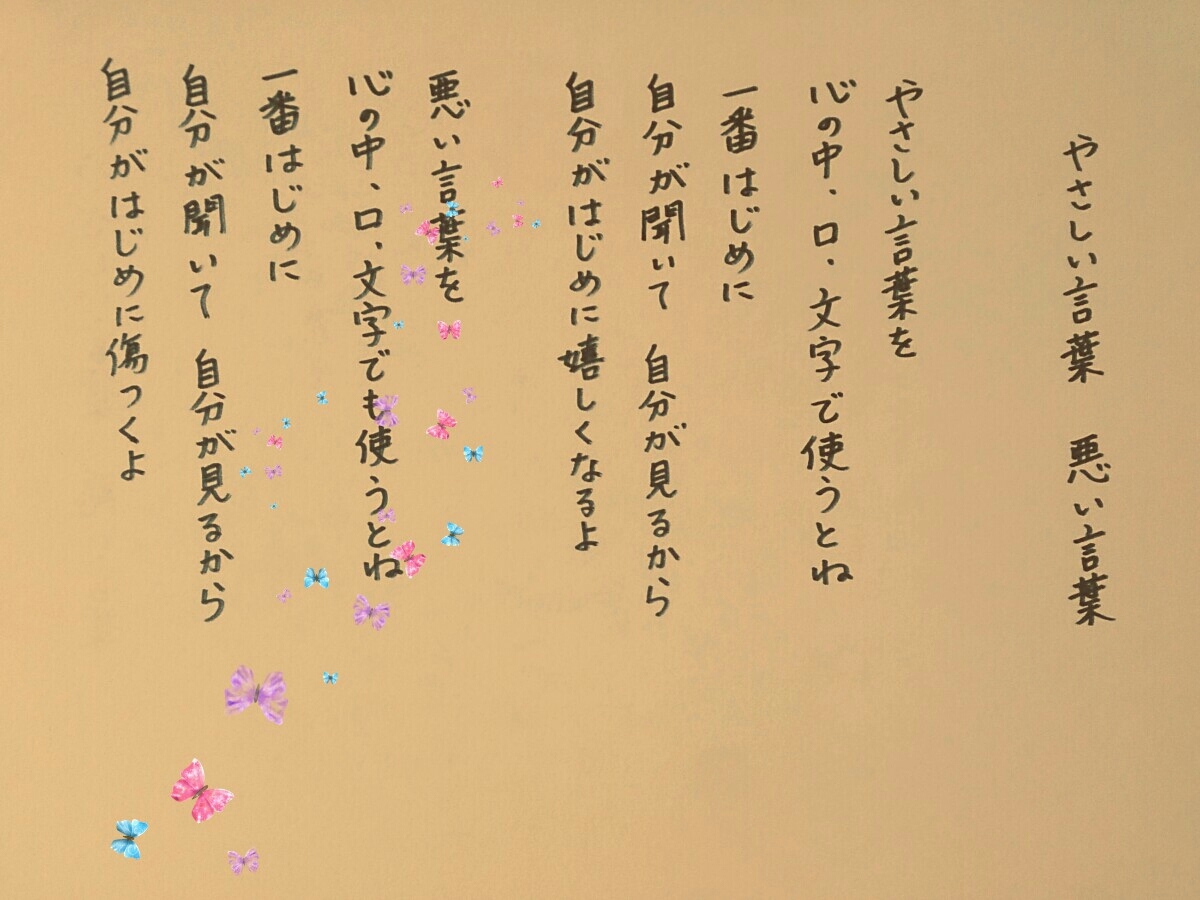 やさしい言葉 悪い言葉
やさしい言葉を
心の中、口、文字で使うとね
一番はじめに
自分が聞いて 自分が見るから
自分がはじめに嬉しくなるよ
悪い言葉を
心の中、口、文字でも使うとね
一番はじめに
自分が聞いて 自分が見るから
自分がはじめに傷つくよ